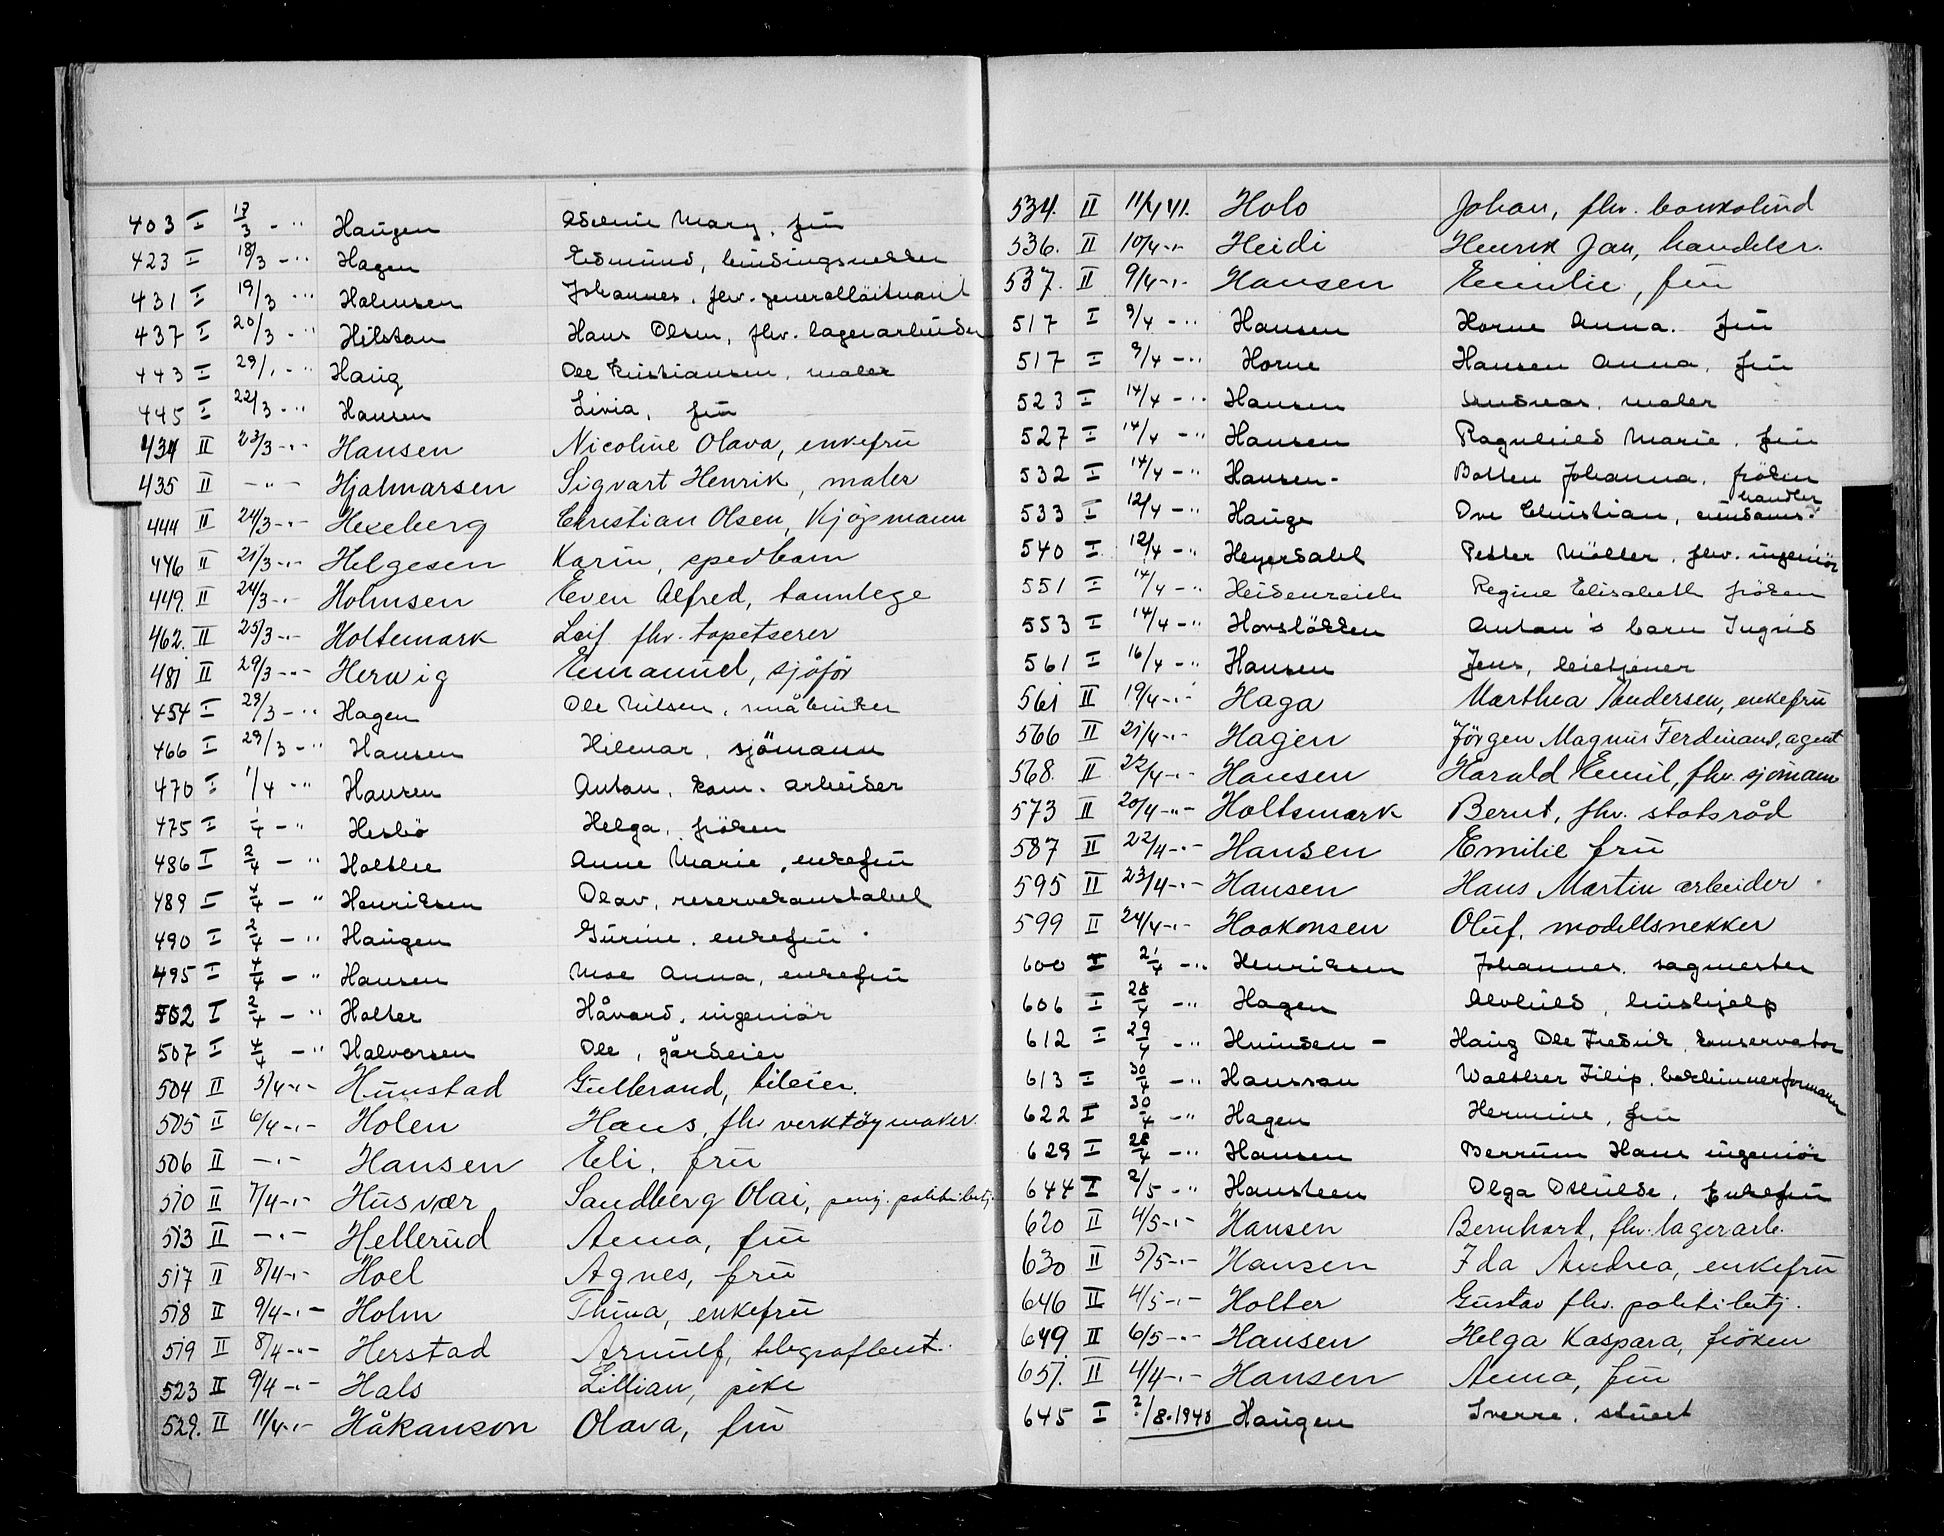 403 I 17/3 -" Haugen Mary, fru
423 I 18/3 -" Hagen Edmund, bindingsnekker
431 I 19/3 -" Halmsen Johannes, fhv. generalløitnant
437 I 20/3 -" Hilstan Hans Olsen, fhv. lagerarbeider
443 I 29/1 -" Haug Ole Kristiansen, maler
445 I 22/3 -" Hansen Livia, fru
434 II 23/3 -"- Hansen Nicoline Olava, enkefru
435 II -"- Hjalmarsen Sigvart Henrik, maler
444 II 24/3 -"- Hexeberg Christian Olsen, Kjøpmann
446 II 21/3 -"- Helgesen Karin, spedbarn
449. II 24/3 -"- Holmsen Even Alfred, tannlege
462. II 25/3 -"- Holtemark Leif fhv. tapetserer
481 II 29/3 -"- Herwig Emanuel, sjåfør
454 I 29/3 -" Hagen Ole Nilsen, småbruker
466 I 29/3 -" Hansen Hilmar, sjömann
470 I 1/4 " Hansen Anton, kom. arbeider
475 I 1/4 -" Hesbö Helga, fröken
486 I 2/4 -" Holtlie Anne Marie, enkefru
489 I 4/4 -" Henriksen Olav, reservekonstabel
490 I 2/4 -" Haugen Gurine, enkefru
495 I 4/4 -" Hansen Moe Anna, enkefru
502 I 2/4 -" Holter Håvard, ingeniör
507 I 4/4 -" Halvorsen Ole, gårdeier
504 II 5/4 -"- Hunstad Gulbrand, bileier.
505 II 6/4 -"- Holen Hans, fhv verktöymaker.
506 II -"- Hansen Eli, fru
510 II 7/4 -"- Husvær Sandberg Olai, penj. politibetj.
513 II -"- Hellerud Anna, fru
517 II 8/4 -"- Hoel Agnes, fru
518 II 9/4 -"- Holm Thina, enkefru
519 II 8/4 -"- Herstad Arnulf, telegrafbest.
523 II 9/4 -"- Hals Lillian, pike
529. II 11/4 -"- Håkanson Olava, fru
534. II 11/4 41. Holo Johan, fhv. bankolind
536. II 10/4 -"- Heidi Henrik Jan, handelsr.
537. II 9/4 -"- Hansen Emilie, fru
517 I 9/4 -" Hansen Horne Anna. fru
517 I 9/4 -" Horne Hansen Anna, fru
523 I 14/4 -" Hansen maler
527 I 14/4 -" Hansen Ragnhild Marie, fru
532 I 14/4 -" Hansen- Botten Johanna, fröken
533 I 12/4 -" Hauge Ove Christian, eiendoms-handler
540 I 12/4 -" Heyerdahl Petter Möller, fhv. ingeniör
551 I 14/4 -" Heidenreich Regine Elisabeth fröken
553 I 14/4 -" Hovslökken Anton's barn Ingrid
561 I 16/4 -" Hansen Jens, leietjener
561 II 19/4 -"- Haga Marthea Andersen, enkefru
566 II 21/4 -"- Hagen Jörgen Magnus Ferdinand, agent
568. II 22/4 -"- Hansen Harald Emil, fhv. sjömann
573 II 20/4 -"- Holtsmark Bernt, fhv. statsråd
587 II 22/4 -"- Hansen Emilie fru
595 II 23/4 -"- Hansen Hans Martin arbeider
599 II 24/4 -"- Haakonsen Oluf, modellsnekker
600 I 21/4 -" Henriksen Johannes. sagmester
606 I 28/4 -" Hagen Alvhild, hushjelp
612 I 29/4 -" Huinden - Haug Ole Fredrik, konservator
613 I 30/4 -" Hansson Walther Filip, formann
622 I 30/4 -" Hagen Hermine, fru
629 I 28/4 -" Hansen Berrum Hans ingeniör
644 I 2/5 -" Hansteen Olga Othilde, Enkefru
620 II 4/5 -"- Hansen Bernhard, fhv. lagerarb.
630 II 5/5 -"- Hansen Ida Andrea, enkefru
646 II 4/5 -"- Holter Gustav fhv. politibetj.
649 II 6/5 -"- Hansen Helga Kaspara, fröken
657. II 4/4 -"- Hansen Anna, fru
645 I ?/8.1940 Haugen Sverre, stuert